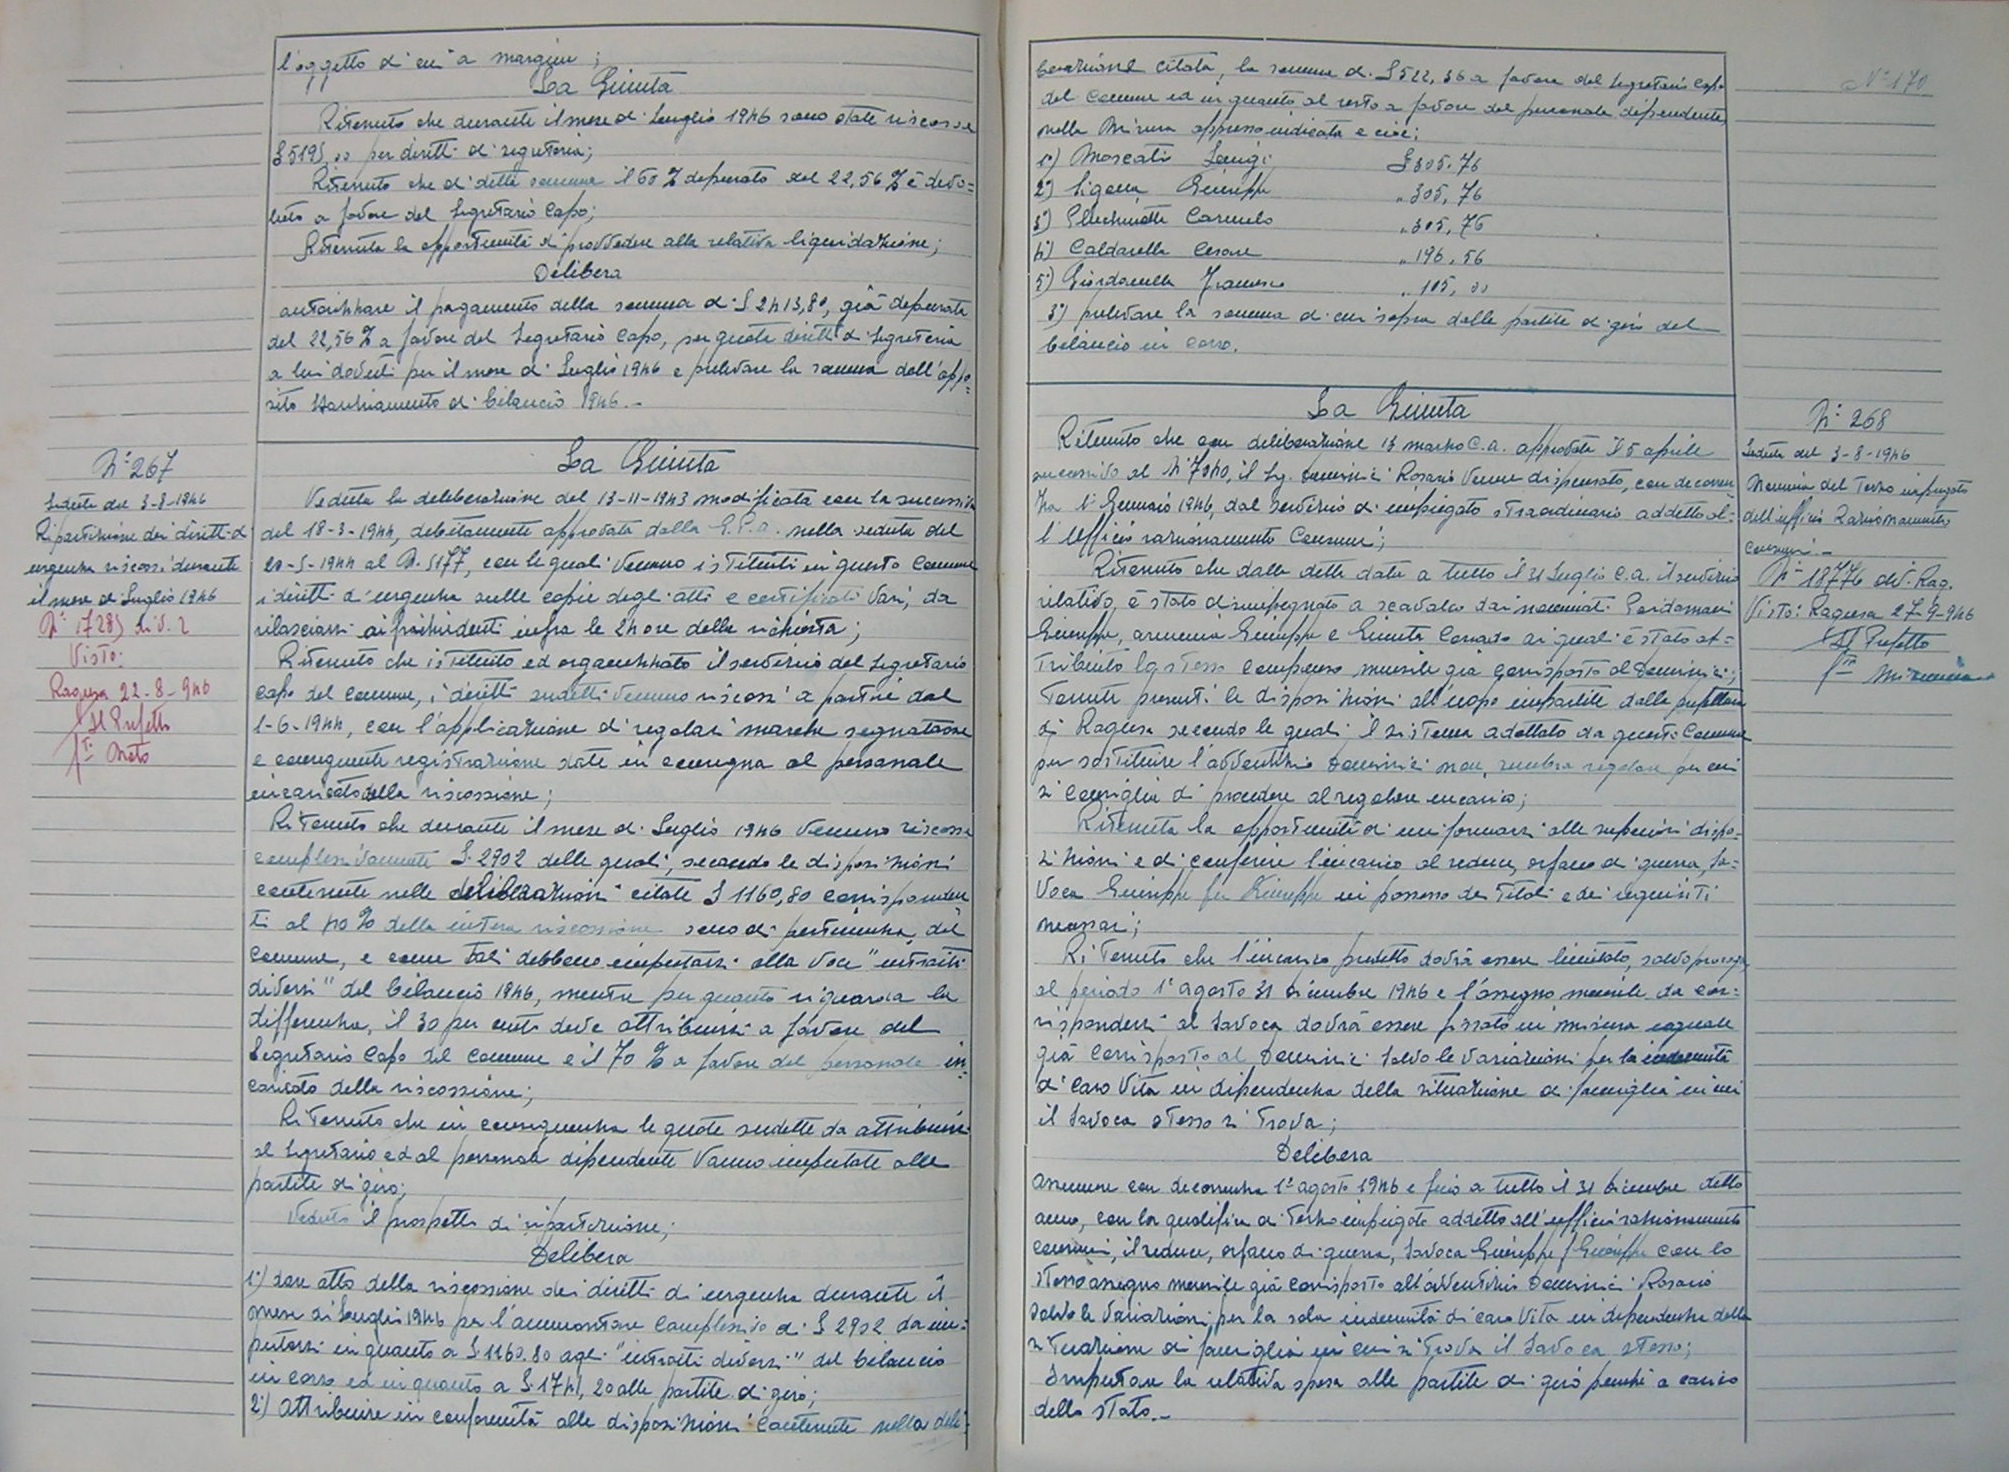 l'oggetto di cui a margine;
La Giunta
Ritenuto che durante il mese di Luglio 1946 sono state riscosse
£ 5195,00 per diritti di segreteria;
Ritenuto che di detta somma il 60 % depurato del 22,56 % è devo=
luto a favore del Segretario Capo;
Ritenuta la opportunità di provvedere alla relativa liquidazione;
Delibera
autorizzare il pagamento della somma di £ 2413,80, già depurata
del 22,56 % a favore del Segretario Capo, per quote diritti di Segreteria
a lui dovuti per il mese di Luglio 1946 e prelevare la somma dall'appo=
sito stanziamento di bilancio 1946.-
N° 267
Seduta del 3-8-1946
Ripartizione dei diritti di
urgenza riscossi durante
il mese di Luglio 1946
N° 17285 div. 2
Visto:
Ragusa 22-8-946
Il Prefetto
La Giunta
Veduta la deliberazione del 13-11-1943 modificata con la successiva
del 18-3-1944, debitamente approvata dalla G.P.A. nella seduta del
20-5-1944 al N. 5177, con le quali vennero istituiti in questo Comune
i diritti d'urgenza sulle copie degli atti e certificati vari, da
rilasciarsi ai richiedenti infra le 24 ore della richiesta;
Ritenuto che istituito ed organizzato il servizio dal Segretario
Capo del Comune, i diritti suddetti vennero riscossi a partire dal
1-6-1944, con l'applicazione di regolari marche segnatasse
e conseguente registrazione date in consegna al personale
incaricato della riscossione;
Ritenuto che durante il mese di Luglio 1946 vennero riscosse
complessivamente £. 2902 delle quali, secondo le disposizioni
contenute nelle deliberazioni citate £ 1160,80 corrisponden
ti al 40 % della intera riscossione sono di pertinenza del
Comune, e come tali debbono imputarsi alla voce "introiti
diversi" del bilancio 1946, mentre per quanto riguarda la
differenza, il 30 per cento deve attribuirsi a favore del
Segretario Capo del Comune e il 70 % a favore del personale in=
caricato della riscossione;
Ritenuto che in conseguenza le quote sudette da attribuirsi
al Segretario ed al personale dipendente vanno imputate alle
partite di giro;
Veduto il prospetto di ripartizione;
Delibera
1°) dare atto della riscossione dei diritti di urgenza durante il
mese di Luglio 1946 per l'ammontare complessivo di £ 2902 da im=
putarsi in quanto a £ 1160.80 agli "introiti diversi" del bilancio
in corso ed in quanto a £. 1741,20 alle partite di giro;
2°) attribuire in conformità alle disposizioni contenute nella deli=
N° 170
berazione citata, la somma di £ 522,36 a favore del Segretario Capo
del Comune ed in quanto al resto a favore del personale dipendente
nella misura appresso indicata e cioè:
1°) Moscato Luigi £ 305.76
2°) Ligama Giuseppe " 305,76
3°) Carmelo " 305,76
4°) Caldarella Cesare " 196,56
5°) Giordanella Francesco " 105,00
3°) prelevare la somma di cui sopra dalle partite di giro del
bilancio in corso.
La Giunta
Ritenuto che con deliberazione 13 marzo c.a. approvata il 5 aprile
successivo al N° 7040, il Sig. Dominici Rosario venne dispensato, con decorren
za 1° Gennaio 1946, dal servizio di impiegato straordinario addetto al=
l'Ufficio razionamento Consumi;
Ritenuto che dalla detta data a tutto il 31 Luglio c.a. il servizio
relativo, è stato disimpegnato a scavalco dai nominati
Giuseppe, Giuseppe e Giunta Corrado ai quali è stato at=
tribuito lo stesso compenso mensile già corrisposto al Dominici;
Tenute presenti le disposizioni all'uopo impartite dalla prefettura
di Ragusa secondo le quali il sistema adottato da questo Comune
per sostituire l'avventizio Dominici non sembra regolare per cui
si consiglia di procedere al regolare incarico;
Ritenuta la opportunità di uniformarsi alle superiori dispo=
sizioni e di conferire l'incarico al reduce, orfano di guerra, Sa=
voca Giuseppe fu Giuseppe in possesso dei titoli e dei requisiti
necessari;
Ritenuto che l'incarico predetto dovrà essere limitato, salvo proroga,
al periodo 1° agosto 31 dicembre 1946 e l'assegno mensile da cor=
rispondersi al Savoca dovrà essere fissato in misura uguale
già corrisposto al Dominici salvo le variazioni per la indennità
di caro vita in dipendenza della situazione di famiglia in cui
il Savoca stesso si trova;
Delibera
assumere con decorrenza 1° agosto 1946 e fino a tutto il 31 dicembre detto
anno, con la qualifica di terzo impiegato addetto all'ufficio razionamento
consumi, il reduce, orfano di guerra, Savoca Giuseppe f. Giuseppe con lo
stesso assegno mensile già corrisposto all'avventizio Dominici Rosario
salvo le variazioni, per la sola indennità di caro vita in dipendenza della
situazione di famiglia in cui si trova il Savoca stesso;
Imputare la relativa spesa alle partite di giro perchè a carico
dello Stato.-
N° 268
Seduta del 3-8-1946
Nomina del Terzo impiegato
dell'ufficio Razionamento
consumi.-
N° 18776 div. Rag.
Visto: Ragusa 27-9-946
Il Prefetto